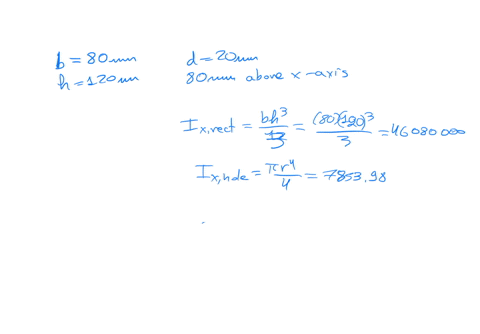 b = 80mm d = 20mm
h = 120mm 80mm above x-axis
I_x,rect = bh³/3 = (80)(120)³/3 = 46080000
I_x,hole = πr⁴/4 = 7853.98